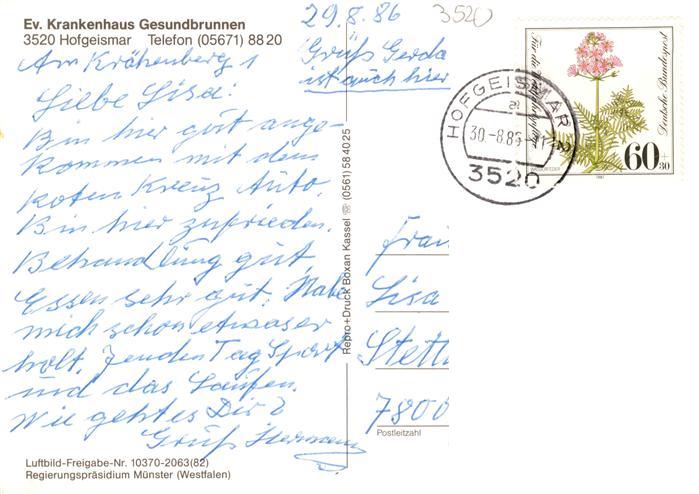 Ev. Krankenhaus Gesundbrunnen
3520 Hofgeismar Telefon (05671) 88 20
Am Krähenberg 1
29.8.86
3520
Grüß Gerda
ist auch hier
Liebe Lisa!
Bin hier gut ange-
kommen mit dem
Roten Kreuz Auto.
Bin hier zufrieden.
Behandlung gut,
Essen sehr gut. Habe
mich schon etwas er
holt. Jenden Tag Sport
und das Laufen.
Wie geht es Dir?
Gruß Hermann
Luftbild-Freigabe-Nr. 10370-2063(82)
Regierungspräsidium Münster (Westfalen)
Repro+Druck Boxan Kassel ☏ (0561) 58 40 25
HOFGEISMAR 2
30.-8.86
3520
Für die Wohlfahrtspflege
Deutsche Bundespost
60+30
Frau
Lisa
Stett
7800
Postleitzahl